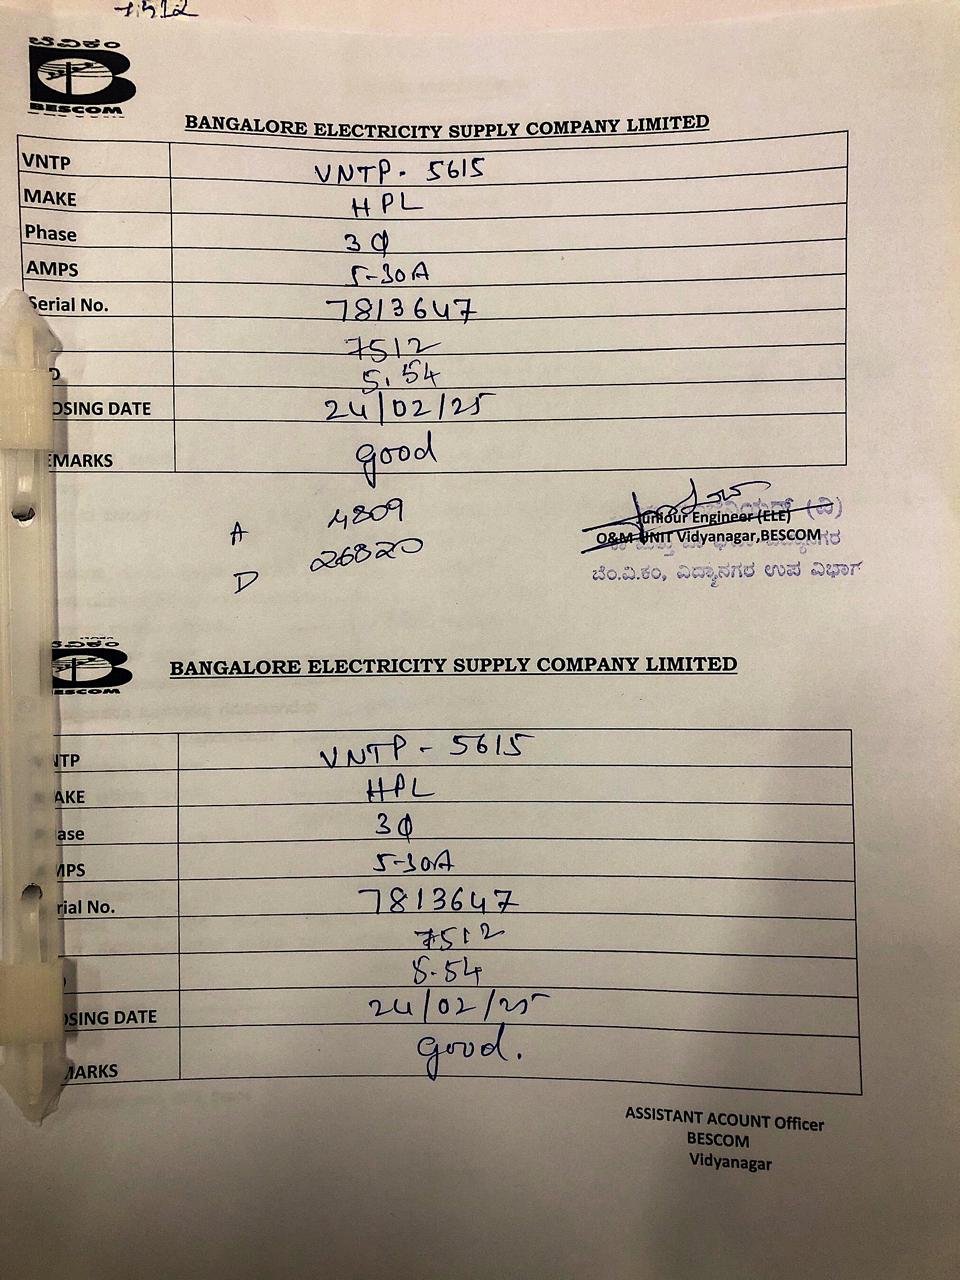 7512
ಬೆವಿಕಂ
BESCOM
BANGALORE ELECTRICITY SUPPLY COMPANY LIMITED
VNTP VNTP - 5615
MAKE HPL
Phase 3Φ
AMPS 5-30A
Serial No. 7813647
7512
D 5.54
OSING DATE 24/02/25
EMARKS good
A 4809
D 26820
Juniour Engineer (ELE)
O&M UNIT Vidyanagar,BESCOM
ಬೆಂ.ವಿ.ಕಂ, ವಿದ್ಯಾನಗರ ಉಪ ವಿಭಾಗ
BESCOM
BANGALORE ELECTRICITY SUPPLY COMPANY LIMITED
NTP VNTP - 5615
AKE HPL
ase 3Φ
MPS 5-30A
rial No. 7813647
7512
5.54
OSING DATE 24/02/25
MARKS good.
ASSISTANT ACOUNT Officer
BESCOM
Vidyanagar